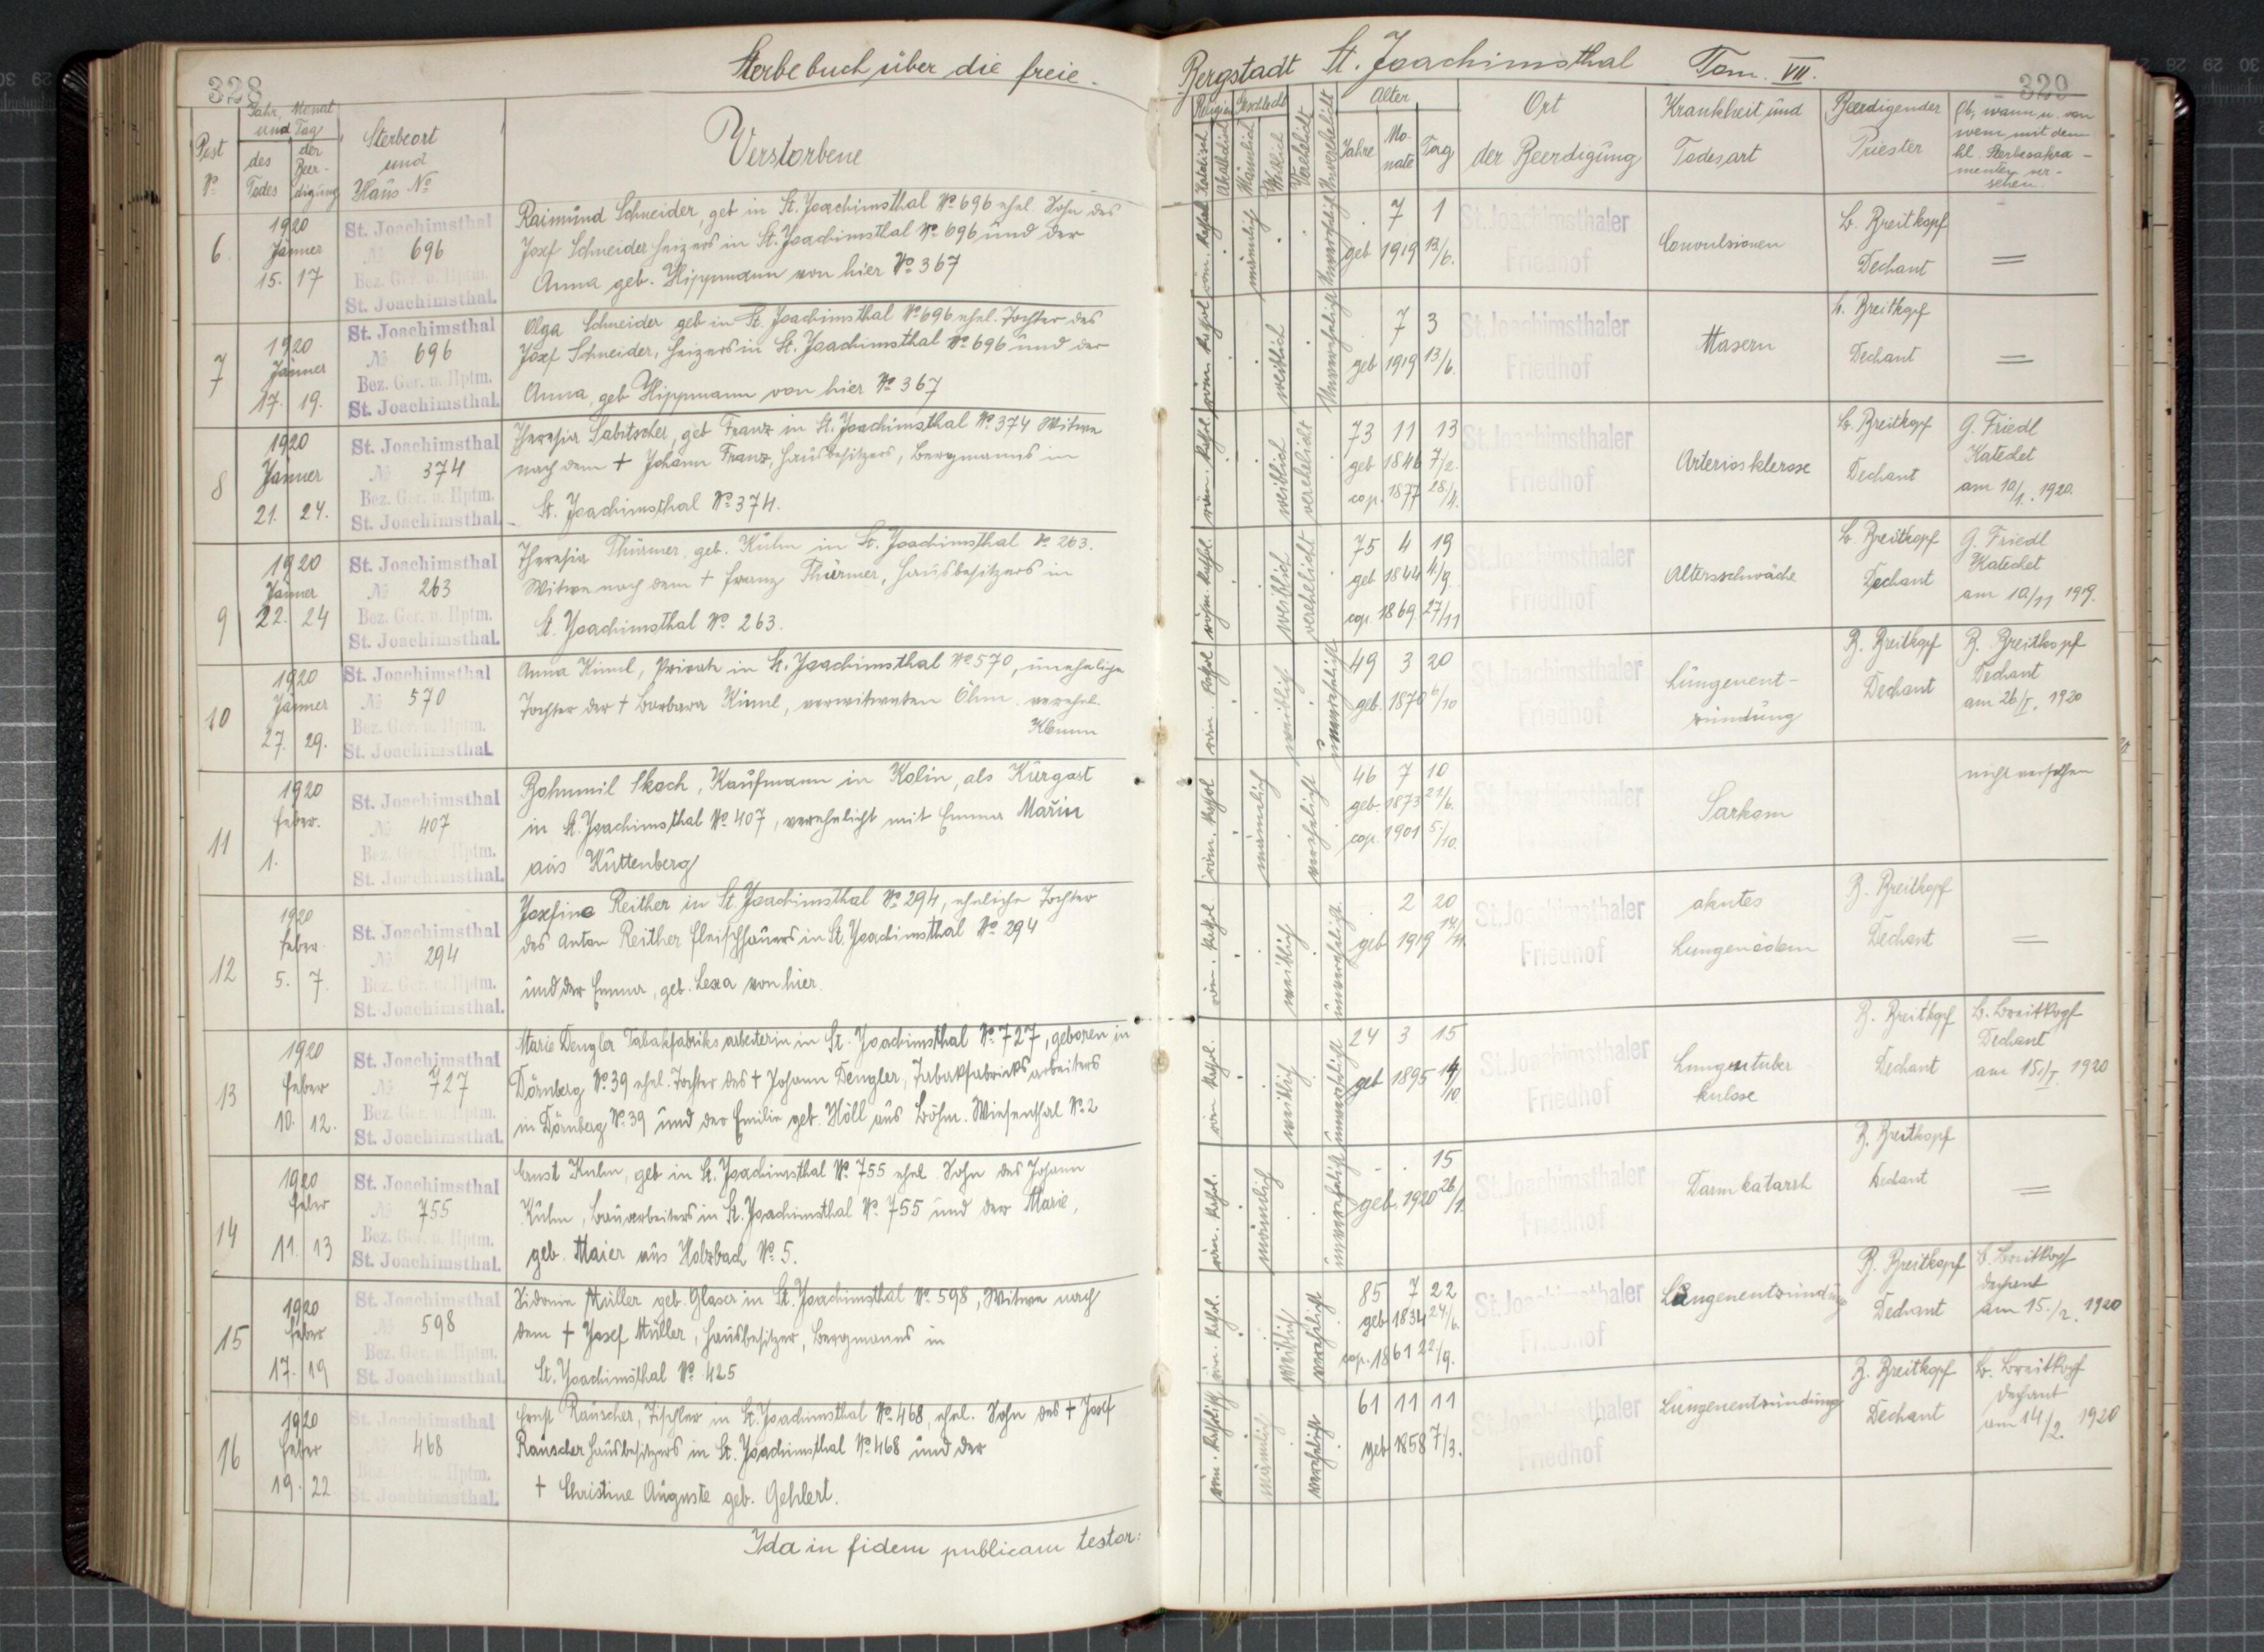 328
Sterbebuch über die freie
Post
No
Jahr, Monat
und Tag
des
Todes
der
Beer-
digung
Sterbeort
und
Haus No
Verstorbene
6
1920
Jänner
15. 17
St. Joachimsthal
No 696
Bez. Ger. u. Hptm.
St. Joachimsthal.
Raimund Schneider, geb in St. Joachimsthal No 696 ehel. Sohn des
Josef Schneider Heizers in St. Joachimsthal No 696 und der
Anna geb. Hippmann von hier No 367
7
1920
Jänner
17. 19.
St. Joachimsthal
No 696
Bez. Ger. u. Hptm.
St. Joachimsthal.
Olga Schneider geb in St. Joachimsthal No 696 ehel. Tochter des
Josef Schneider, Heizers in St. Joachimsthal No 696 und der
Anna, geb Hippmann von hier No 367
8
1920
Jänner
21. 24.
St. Joachimsthal
No 374
Bez. Ger. u. Hptm.
St. Joachimsthal.
Theresia Sabitscher, geb Franz in St. Joachimsthal No 374 Witwe
nach dem † Johann Franz, Hausbesitzers, Bergmanns in
St. Joachimsthal No 374.
9
1920
Jänner
22. 24
St. Joachimsthal
No 263
Bez. Ger. u. Hptm.
St. Joachimsthal.
Theresia Thürmer, geb. Kuhn in St. Joachimsthal No 263.
Witwe nach dem † Franz Thürmer, Hausbesitzers in
St. Joachimsthal No 263.
10
1920
Jänner
27. 29.
St. Joachimsthal
No 570
Bez. Ger. u. Hptm.
St. Joachimsthal.
Anna Kinnl, Private in St. Joachimsthal No 570, uneheliche
Tochter der † Barbara Kinnl, verwitweten Öhm verehel.
11
1920
Feber.
1.
St. Joachimsthal
No 407
Bez. Ger. u. Hptm.
St. Joachimsthal.
Bohumil Skoch, Kaufmann in Kolin, als Kurgast
in St. Joachimsthal No 407, verehelicht mit Emma Mařin
aus Kuttenberg
12
1920
Feber
5. 7.
St. Joachimsthal
No 294
Bez. Ger. u. Hptm.
St. Joachimsthal.
Josefine Reither in St. Joachimsthal No 294, eheliche Tochter
des Anton Reither Fleischhauers in St. Joachimsthal No 294
und der Emma, geb. Lexa von hier.
13
1920
Feber
10. 12.
St. Joachimsthal
No 727
Bez. Ger. u. Hptm.
St. Joachimsthal.
Marie Dengler Tabakfabriksarbeiterin in St. Joachimsthal No 727, geboren in
Dörnberg No 39 ehel. Tochter des † Johann Dengler, Tabakfabriksarbeiters
in Dörnberg No 39 und der Emilie geb. Höll aus Böhm. Wiesenthal No 2
14
1920
Feber
11. 13
St. Joachimsthal
No 755
Bez. Ger. u. Hptm.
St. Joachimsthal.
Ernst Kuhn, geb in St. Joachimsthal No 755 ehel Sohn des Johann
Kuhn, Bauarbeiters in St. Joachimsthal No 755 und der Marie,
geb. Maier aus Holzbach No 5.
15
1920
Feber
17. 19
St. Joachimsthal
No 598
Bez. Ger. u. Hptm.
St. Joachimsthal.
Sidonie Müller geb. Glaser in St. Joachimsthal No 598, Witwe nach
dem † Josef Müller, Hausbesitzer, Bergmanns in
St. Joachimsthal No 425
16
1920
Feber
19. 22
St. Joachimsthal
468
Bez. Ger. u. Hptm.
St. Joachimsthal.
Ernst Rauscher, Tischler in St. Joachimsthal No 468, ehel. Sohn des † Josef
Rauscher Hausbesitzers in St. Joachimsthal No 468 und der
† Christine Auguste geb. Gehlert.
Ida in fidem publicam testor:
Bergstadt St. Joachimsthal Tom. VII.
329
Religion
Katolisch
Akatholisch
Geschlecht
Männlich
Weiblich
Verehelicht
Unverehelicht
Alter
Jahre
Mo-
nate
Tag
Ort
der Beerdigung
Krankheit und
Todesart
Beerdigender
Priester
Ob, wann u. von
wem mit dem
hl. Sterbesakra-
menten ver-
sehen.
röm. kathol
männlich
unverehelicht
. 7 1
geb 1919 13/6.
St. Joachimsthaler
Friedhof
Convulsionen
B. Breitkopf
Dechant
=
röm. kathol
weiblich
unverehelicht
7 3
geb 1919 13/6.
St. Joachimsthaler
Friedhof
Masern
B. Breitkopf
Dechant
=
röm. kathol.
weiblich
verehelicht
73 11 13
geb 1846 7/2.
cop. 1877 28/4.
St. Joachimsthaler
Friedhof
Arteriosklerose
B. Breitkopf
Dechant
G. Friedl
Katechet
am 10/1. 1920.
röm. kathol.
weiblich
verehelicht
75 4 19
geb 1844 4/9.
cop. 1869 27/11
St. Joachimsthaler
Friedhof
Altersschwäche
B. Breitkopf
Dechant
G. Friedl
Katechet
am 10/11 1919.
röm. kathol
weiblich
unverehelicht
49 3 20
geb. 1870 6/10
St. Joachimsthaler
Friedhof
Lungenent-
zündung
B. Breitkopf
Dechant
B. Breitkopf
Dechant
am 26/I. 1920
röm. kathol
männlich
verehelicht
46 7 10
geb. 1873 21/6.
cop. 1901 5/10.
St. Joachimsthaler
Sarkom
nicht versehen
röm. kathol.
weiblich
unverehelicht
. 2 20
geb 1919 14/11
St. Joachimsthaler
Friedhof
akutes
Lungenödem
B. Breitkopf
Dechant
=
röm kathol.
weiblich
unverehelicht
24 3 15
geb 1895 14/10.
St. Joachimsthaler
Friedhof
Lungentuber
kulose
B. Breitkopf
Dechant
B. Breitkopf
Dechant
am 15/I. 1920
röm. kathol.
männlich
unverehelicht
. . 15
geb. 1920 26/1.
St. Joachimsthaler
Friedhof
Darmkatarrh
B. Breitkopf
Dechant
=
röm. kathol.
weiblich
verehelicht
85 7 22
geb 1834 24/6.
cop. 1861 22/9.
St. Joachimsthaler
Friedhof
Lungenentzündung
B. Breitkopf
Dechant
B. Breitkopf
Dechant
am 15./2. 1920
röm. katholisch
männlich
verehelicht
61 11 11
geb 1858 7/3.
St. Joachimsthaler
Friedhof
Lungenentzündung
B. Breitkopf
Dechant
B. Breitkopf
Dechant
am 14/2. 1920